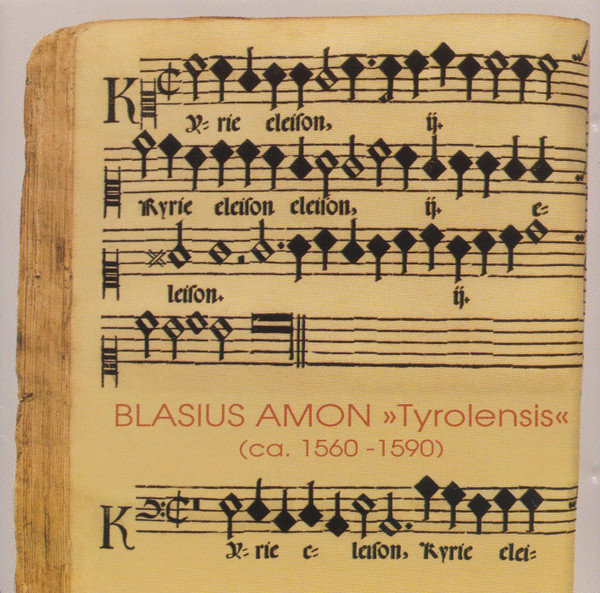 K Y- rie eleison, ij.
Kyrie eleison eleison, ij. e-
leison. ij.
BLASIUS AMON »Tyrolensis«
(ca. 1560 -1590)
K Y- rie e- leison, Kyrie elei-